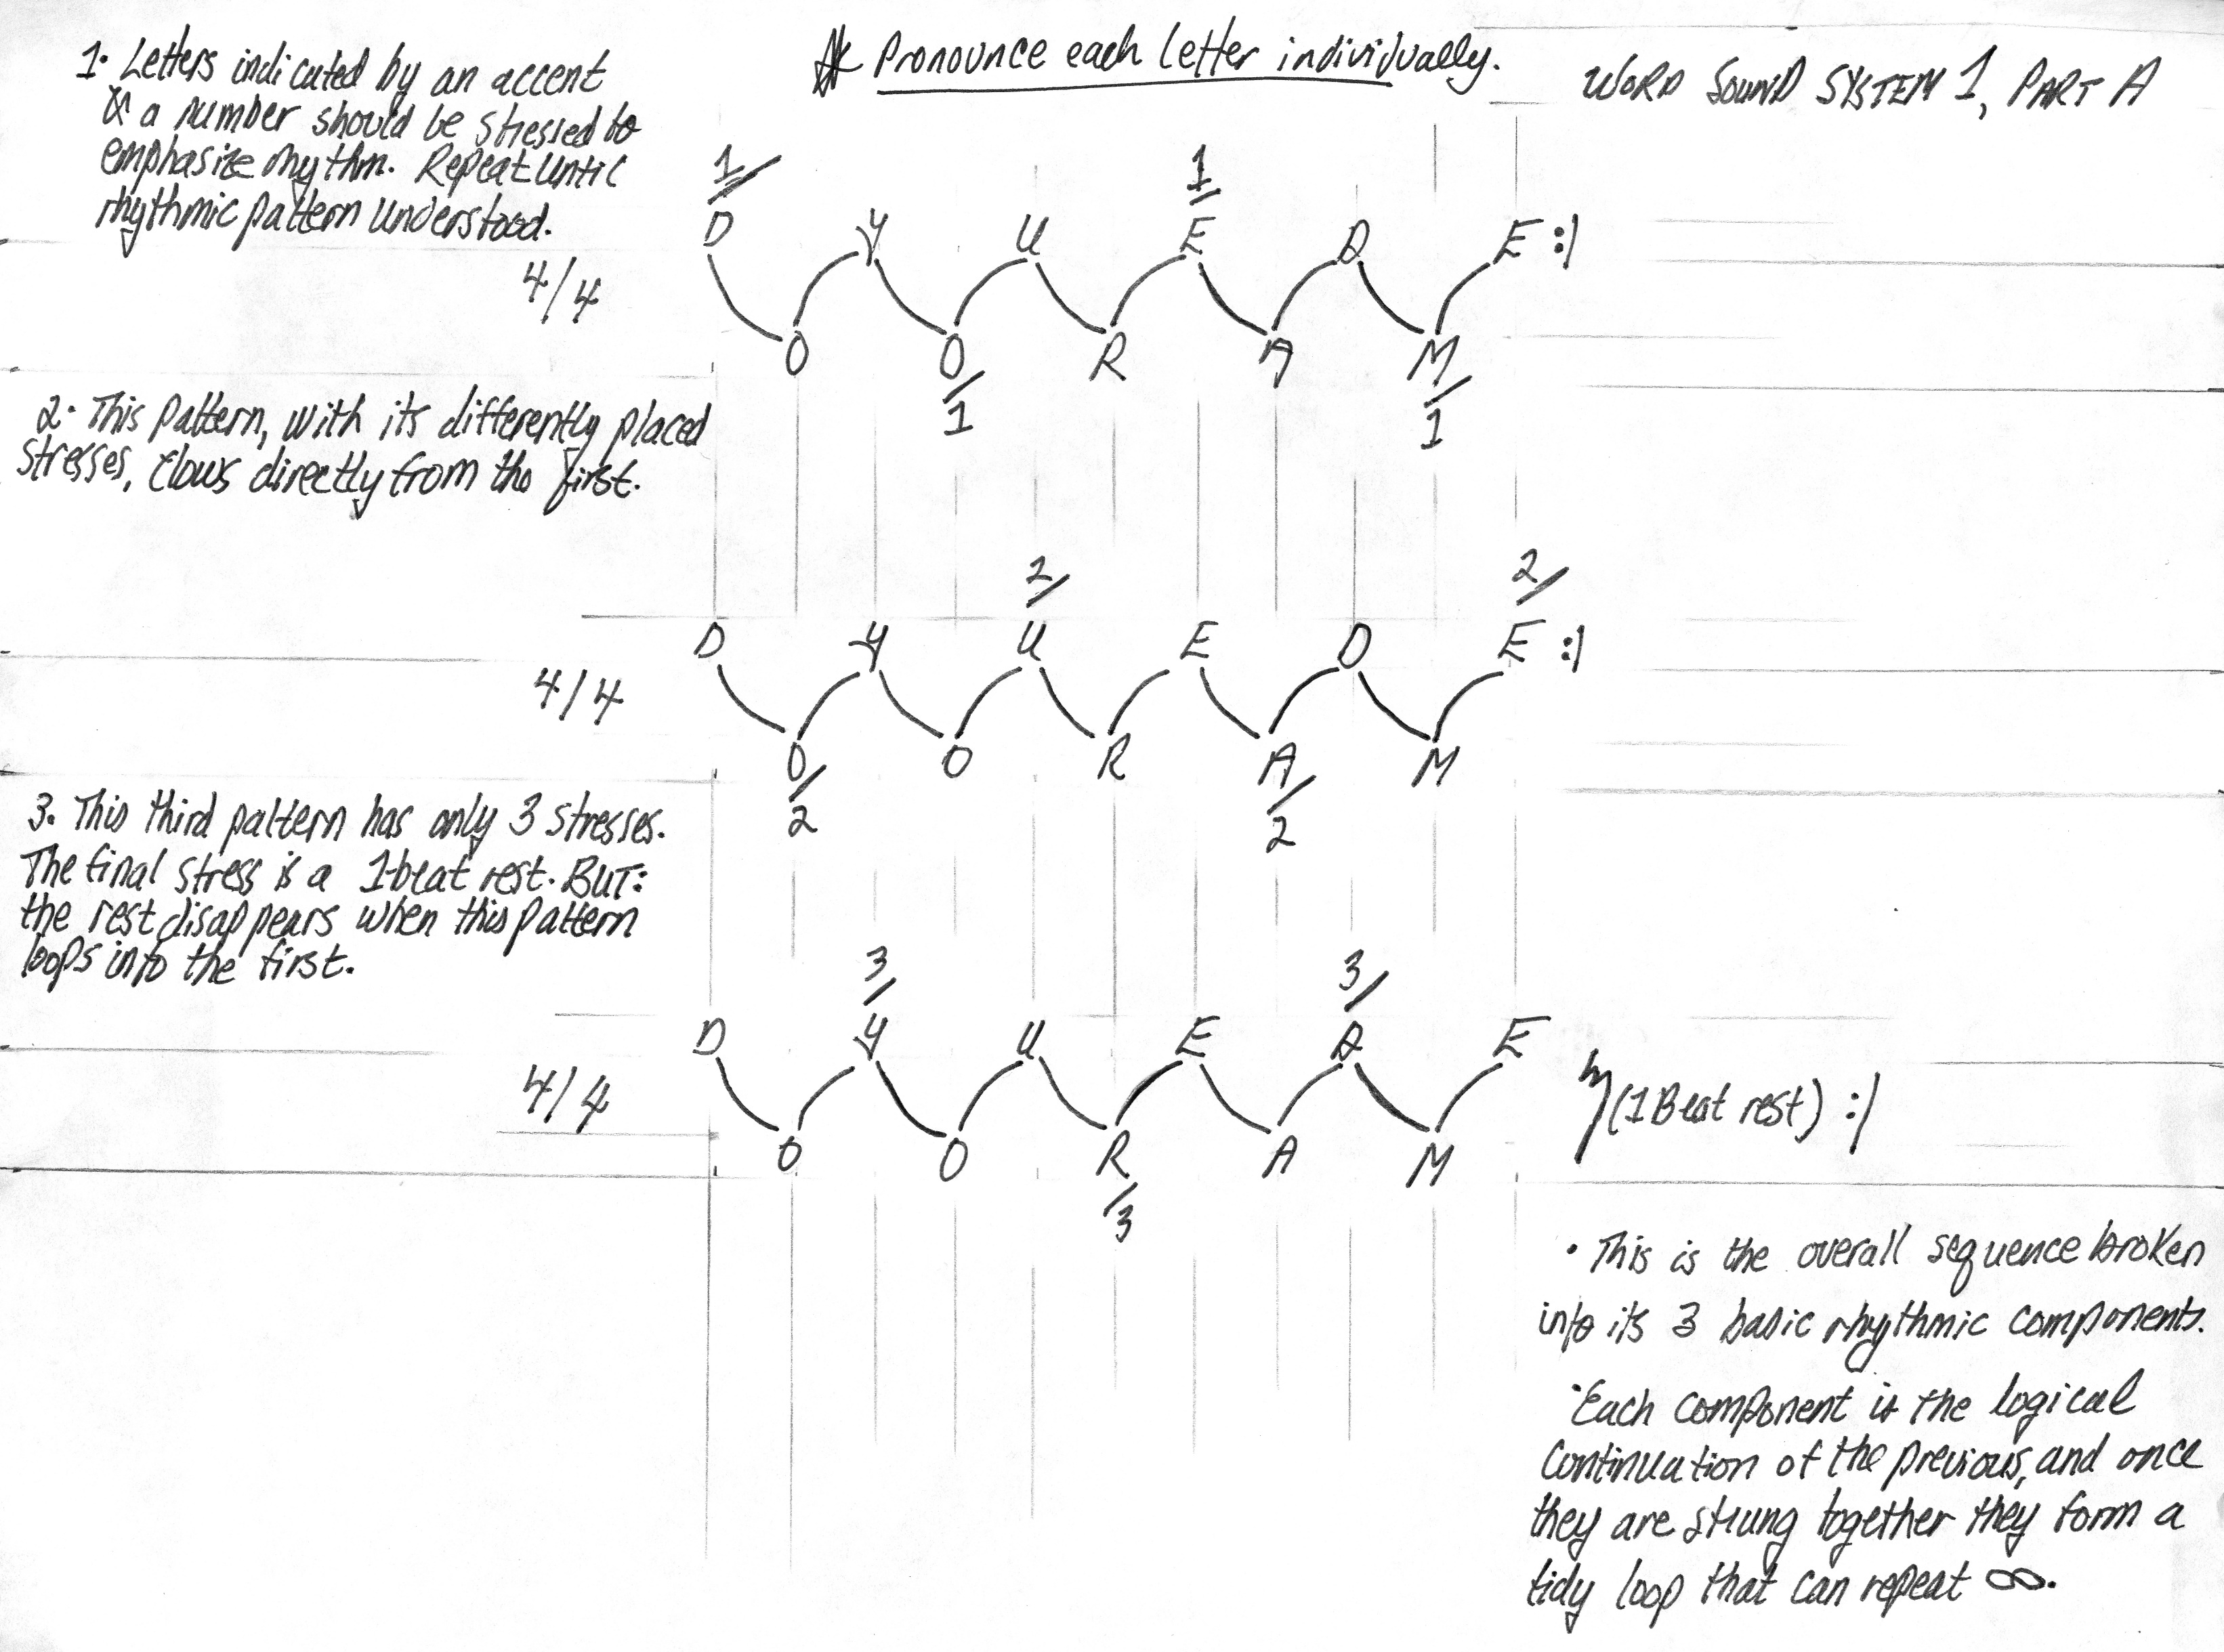 * Pronounce each letter individually.
WORD SOUND SYSTEM 1, PART A
1. Letters indicated by an accent
& a number should be stressed to
emphasize rhythm. Repeat until
rhythmic pattern understood.
4/4
1/ 1/
D Y U E D E :|
O O R A M
/1 /1
2. This pattern, with its differently placed
stresses, flows directly from the first.
4/4
2/ 2/
D Y U E D E :|
O O R A M
/2 /2
3. This third pattern has only 3 stresses.
The final stress is a 1-beat rest. BUT:
the rest disappears when this pattern
loops into the first.
4/4
3/ 3/
D Y U E D E
O O R A M
/3
(1 Beat rest) :|
• This is the overall sequence broken
into its 3 basic rhythmic components.
• Each component is the logical
continuation of the previous, and once
they are strung together they form a
tidy loop that can repeat ∞.